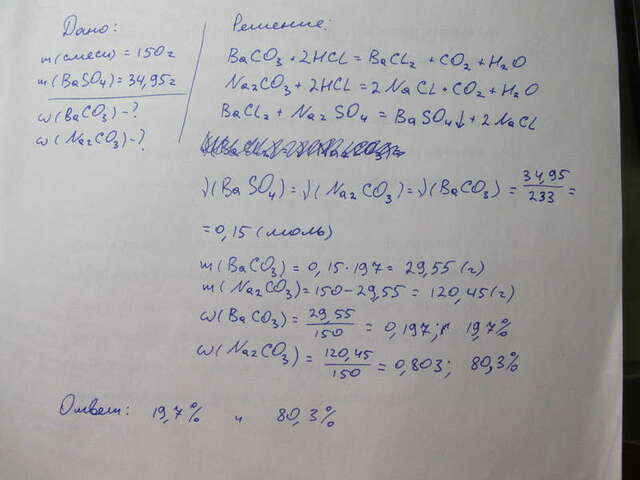 Дано:
m(смеси) = 150г
m(BaSO4) = 34,95г
ω(BaCO3) - ?
ω(Na2CO3) - ?
Решение:
BaCO3 + 2HCl = BaCl2 + CO2 + H2O
Na2CO3 + 2HCl = 2NaCl + CO2 + H2O
BaCl2 + Na2SO4 = BaSO4↓ + 2NaCl
√(BaSO4) = √(Na2CO3) = √(BaCO3) = 34,95/233 =
= 0,15 (моль)
m(BaCO3) = 0,15·197 = 29,55 (г)
m(Na2CO3) = 150 - 29,55 = 120,45 (г)
ω(BaCO3) = 29,55/150 = 0,197; 19,7%
ω(Na2CO3) = 120,45/150 = 0,803; 80,3%
Ответ: 19,7% и 80,3%